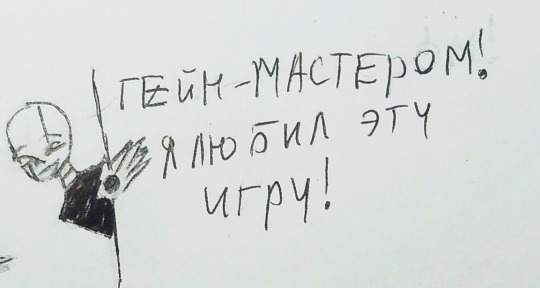 ГЕЙМ-МАСТЕРОМ!
Я ЛЮБИЛ ЭТУ
ИГРУ!